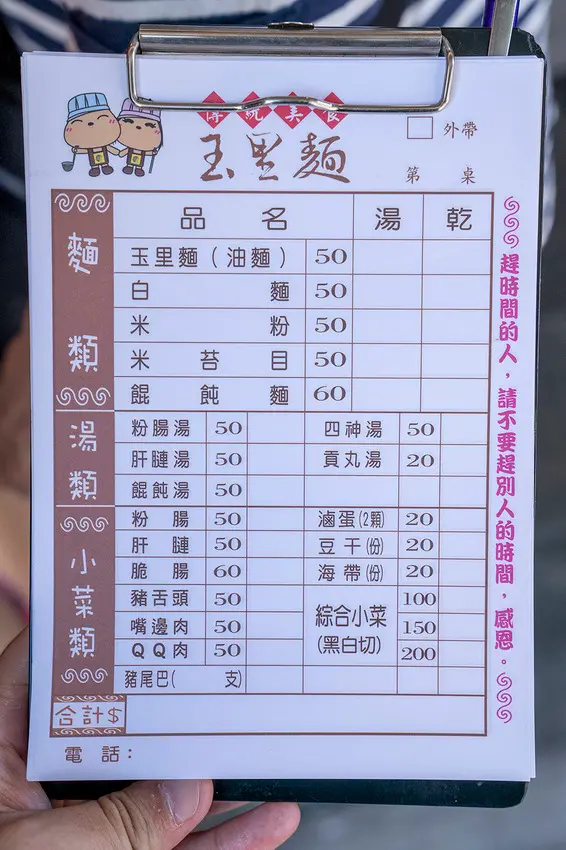 傳統美食
玉里麵
外帶
第 桌
品名 湯 乾
麵類
玉里麵(油麵) 50
白麵 50
米粉 50
米苔目 50
餛飩麵 60
湯類
粉腸湯 50 四神湯 50
肝膶湯 50 貢丸湯 20
餛飩湯 50
小菜類
粉腸 50 滷蛋(2顆) 20
肝膶 50 豆干(份) 20
脆腸 60 海帶(份) 20
豬舌頭 50 綜合小菜 100
嘴邊肉 50 (黑白切) 150
QQ肉 50 200
豬尾巴( 支)
合計$
電話:
趕時間的人,請不要趕別人的時間,感恩。